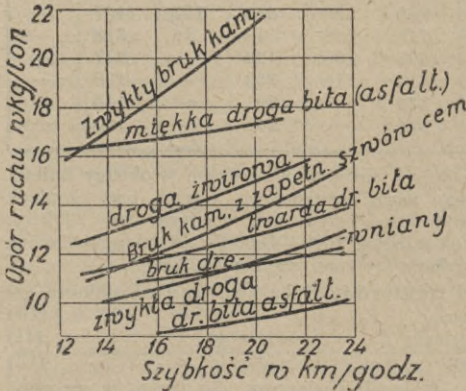 22
20
18
16
14
12
10
Opór ruchu w kg/ton
Zwykły bruk kam.
miękka droga bita (asfalt.)
droga żwirowa
Bruk kam. z zapełn. szwów cem
twarda dr. bita
bruk dre-
-wniany
zwykła droga
dr. bita asfalt.
12 14 16 18 20 22 24
Szybkość w km/godz.